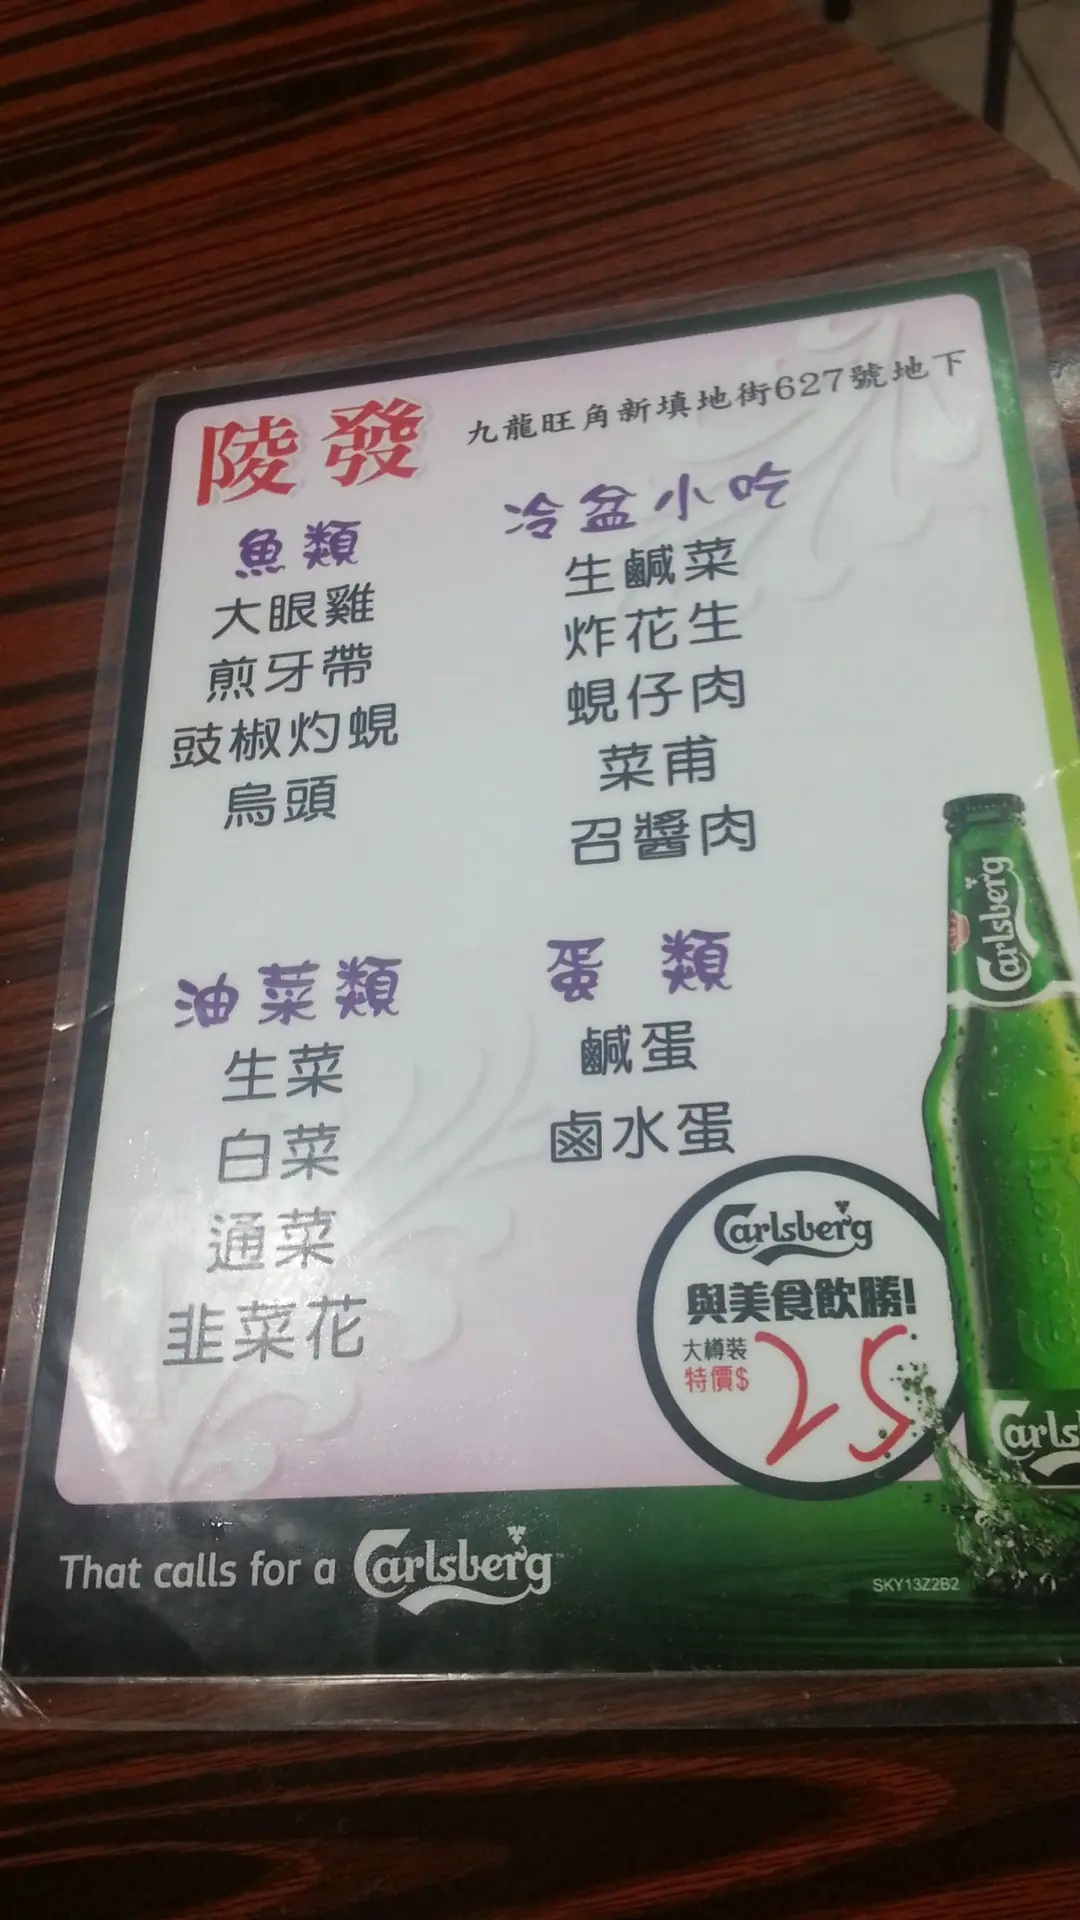 陵發
九龍旺角新填地街627號地下
魚類
大眼雞
煎牙帶
豉椒灼蜆
烏頭
冷盆小吃
生鹹菜
炸花生
蜆仔肉
菜甫
召醬肉
油菜類
生菜
白菜
通菜
韭菜花
蛋類
鹹蛋
鹵水蛋
Carlsberg
與美食飲勝!
大樽裝
特價$25
Carlsberg
Carls
That calls for a Carlsberg
SKY13Z2B2